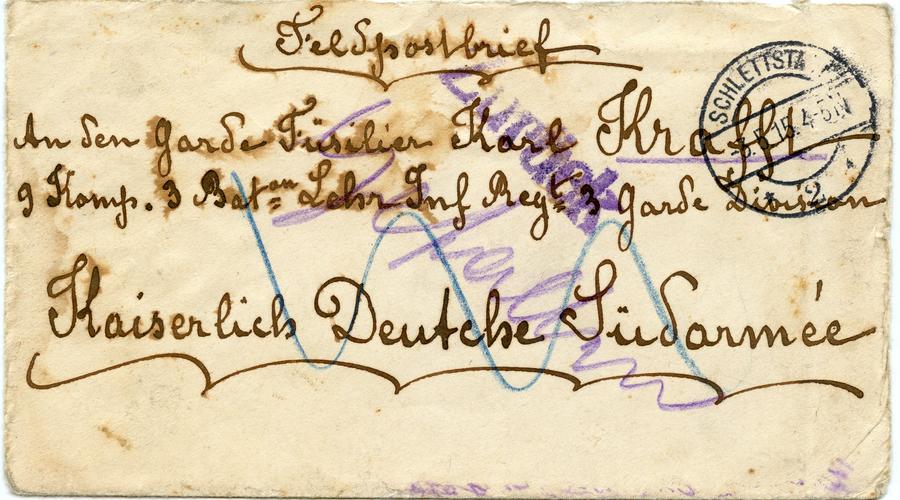 Feldpostbrief
An den Garde Füsilier Karl Krafft
9 Komp. 3 Bat=on Lehr Inf Regt 3 Garde Division
Kaiserlich Deutche Südarmée
Zurück
Gefallen
SCHLETTSTA
15.4-5N
2